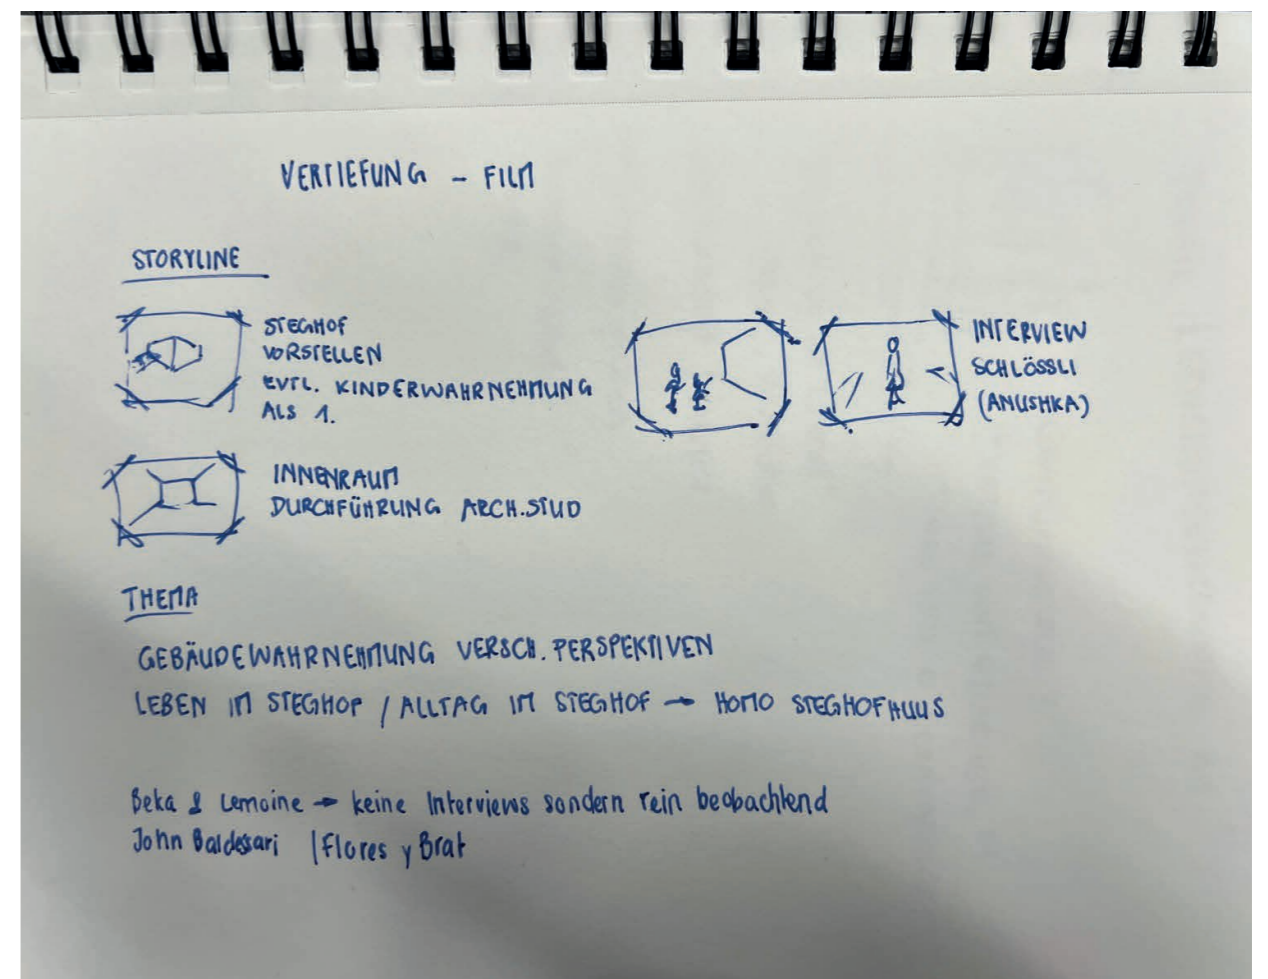 VERTIEFUNG – FILM
STORYLINE
STEGHOF
VORSTELLEN
EVTL. KINDERWAHRNEHMUNG
ALS 1.
INTERVIEW
SCHLÖSSLI
(ANUSHKA)
INNENRAUM
DURCHFÜHRUNG ARCH.STUD
THEMA
GEBÄUDEWAHRNEHMUNG VERSCH. PERSPEKTIVEN
LEBEN IM STEGHOF / ALLTAG IM STEGHOF → HOMO STEGHOFHUUS
Beka & Lemoine → keine Interviews sondern rein beobachtend
John Baldessari | Flores y Prat